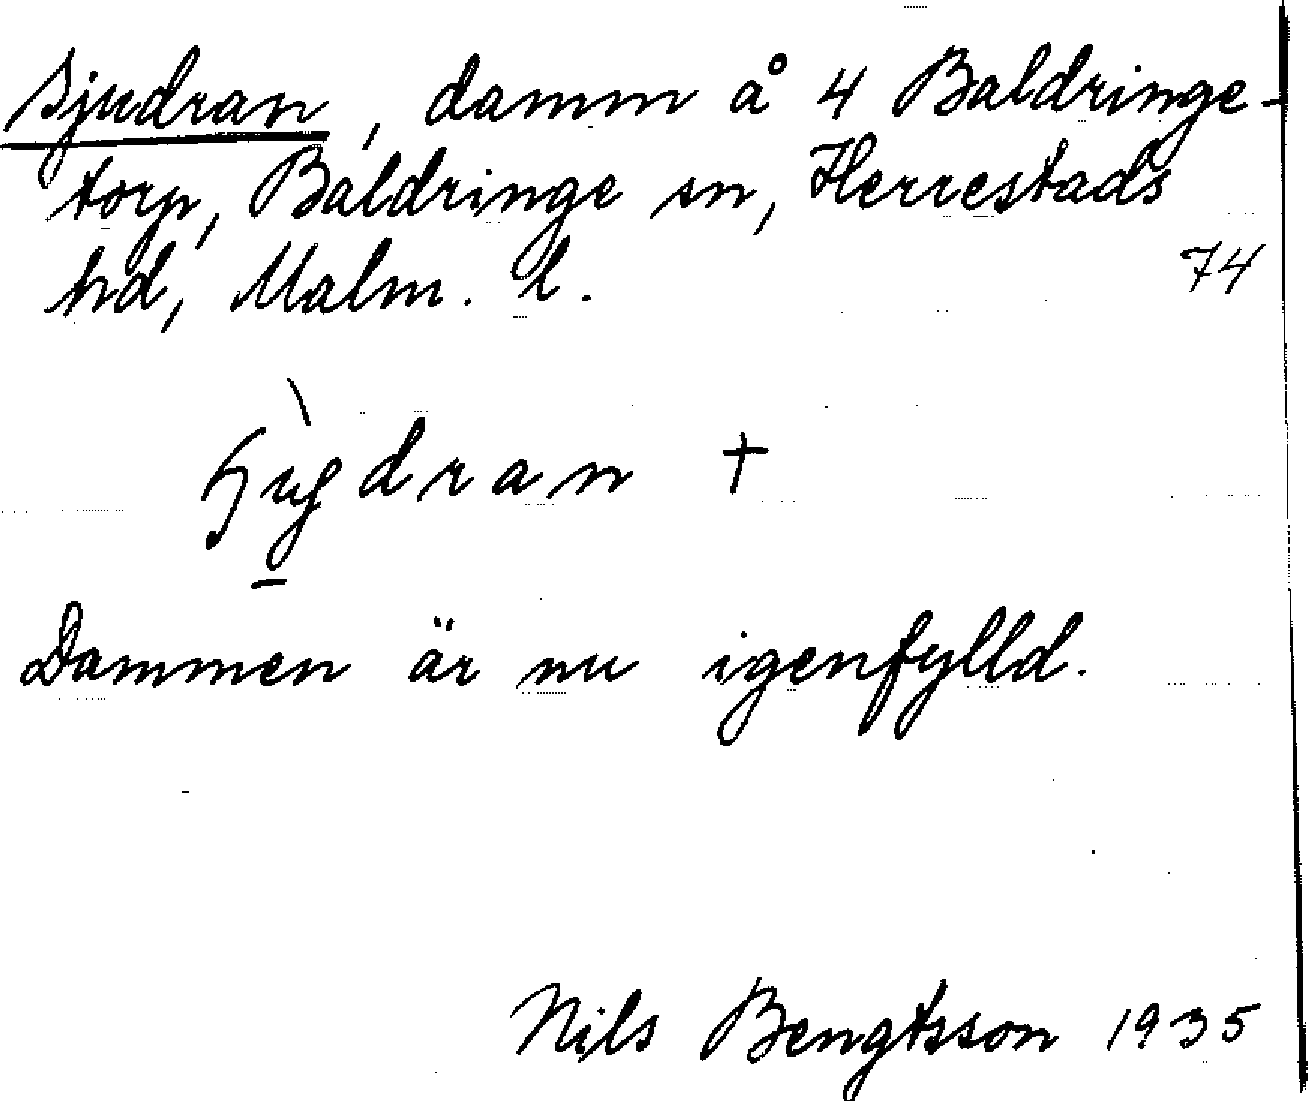 Sjudran, damm å 4 Baldringe-
torp, Baldringe sn, Herrestads
hd, Malm. l.
74
†
Dammen är nu igenfylld.
Nils Bengtsson 1935